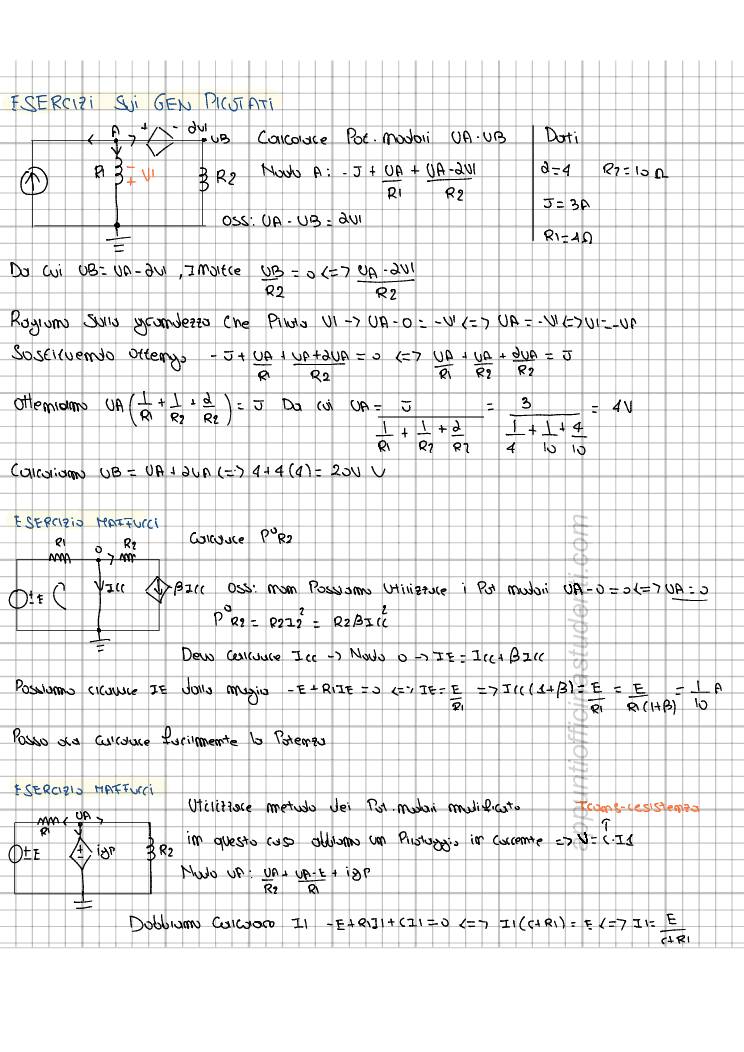 ESERCIZI SUI GEN PILOTATI
A + - αV1 UB
R1 - + V1 R2
Calcolare Pot. nodali UA-UB
Nodo A: -J + UA/R1 + (UA-αV1)/R2
OSS: UA-UB = αV1
Dati
α=4 R2=10Ω
J=3A
R1=4Ω
Da cui UB = UA-αV1, Inoltre UB/R2 = 0 <=> (UA-αV1)/R2
Ragiono sulla grandezza che Pilota V1 -> UA-0 = -V1 <=> UA = -V1 <=> V1 = -UA
Sostituendo ottengo -J + UA/R1 + (UA+αUA)/R2 = 0 <=> UA/R1 + UA/R2 + αUA/R2 = J
Otteniamo UA(1/R1 + 1/R2 + α/R2) = J Da cui UA = J/(1/R1 + 1/R2 + α/R2) = 3/(1/4 + 1/10 + 4/10) = 4V
Calcoliamo UB = UA + αUA <=> 4+4(4) = 20V V
ESERCIZIO MAFFUCCI
R1 0 R2
Calcolare PᵃR2
±E Icc βIcc
OSS: non Possiamo Utilizzare i Pot nodali UA-0=0 <=> UA=0
PᵃR2 = R2I2² = R2βIcc²
Devo calcolare Icc -> Nodo 0 -> IE = Icc+βIcc
Possiamo ricavare IE dalla maglia -E+R1IE=0 <=> IE=E/R1 => Icc(1+β) = E/R1 = E/R1(1+β) = 1/10 A
Posso ora calcolare facilmente la Potenza
ESERCIZIO MAFFUCCI
R1 UA
±E igP R2
Utilizzare metodo dei Pot. nodali modificato Trans-resistenza
in questo caso abbiamo un Pilotaggio in corrente => V=r·I1
Nodo UA: UA/R2 + (UA-E)/R1 + igP
Dobbiamo Calcolare I1 -E+R1I1+rI1=0 <=> I1(r+R1)=E <=> I1=E/(r+R1)
appuntiofficinastudenti.com